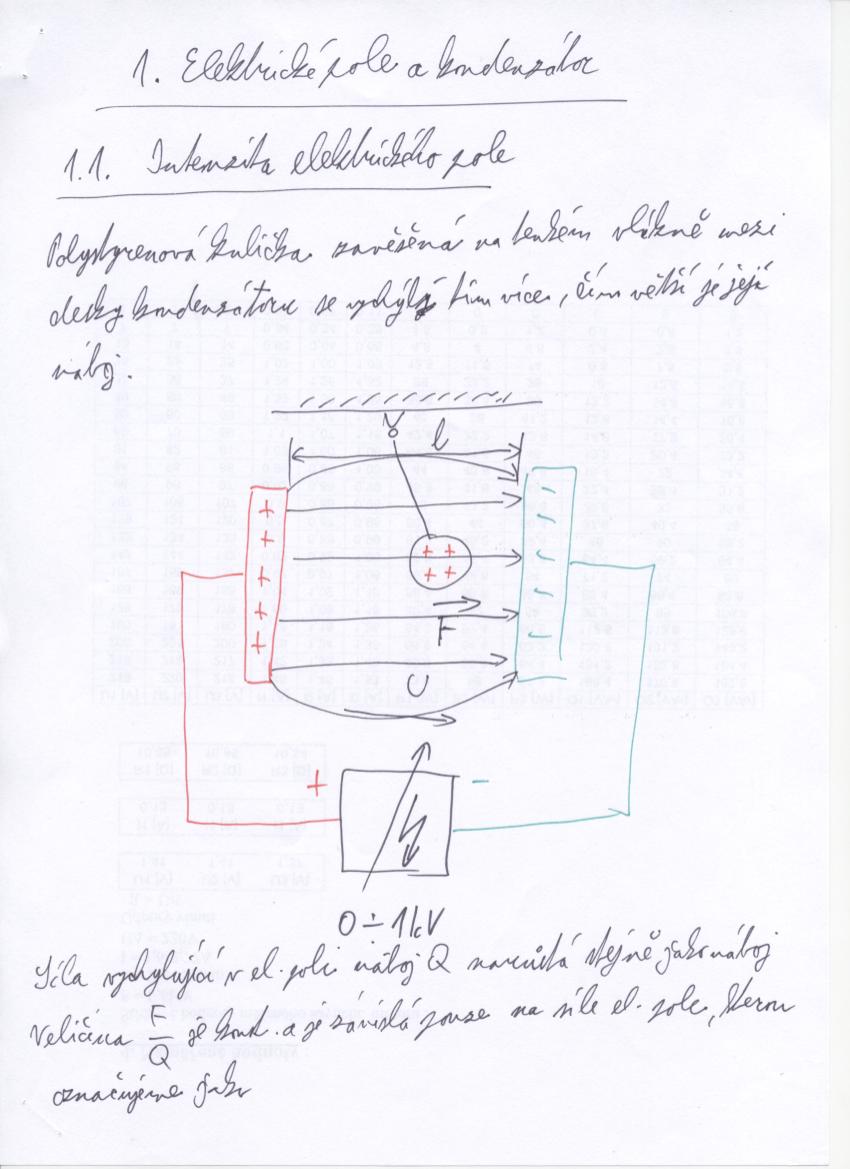 1. Elektrické pole a kondenzátor
1.1. Intenzita elektrického pole
Polystyrenová kulička zavěšená na tenkém vlákně mezi
desky kondenzátoru se vychýlí tím více, čím větší je její
náboj.
l
+ -
+ -
+ + + -
+ + + -
+ -
F
U
+ -
0 ÷ 1kV
Síla vychylující v el. poli náboj Q narůstá stejně jako náboj
Veličina F/Q je konst. a je závislá pouze na síle el. pole, kterou
označujeme jako